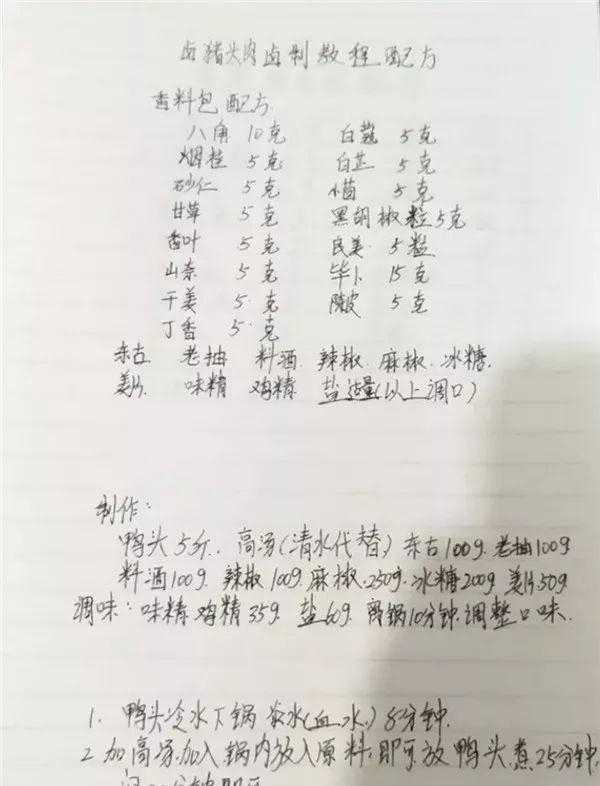 卤猪头肉卤制教程配方
香料包配方
八角 10克 白蔻 5克
烟桂 5克 白芷 5克
砂仁 5克 小茴 5克
甘草 5克 黑胡椒粒5克
香叶 5克 良姜 5粒
山奈 5克 毕卜 15克
干姜 5克 陈皮 5克
丁香 5克
东古 老抽 料酒 辣椒 麻椒 冰糖
姜片 味精 鸡精 盐 适量(以上调口)
制作:
鸭头5斤. 高汤(清水代替) 东古100g 老抽100g
料酒100g 辣椒100g 麻椒.250g.冰糖200g 姜片50g
调味: 味精 鸡精35g 盐60g 离锅10分钟.调整口味.
1. 鸭头冷水下锅 汆水(血水.)8分钟.
2 加高汤.加入锅内放入原料,即可放鸭头.煮25分钟,
分钟即可